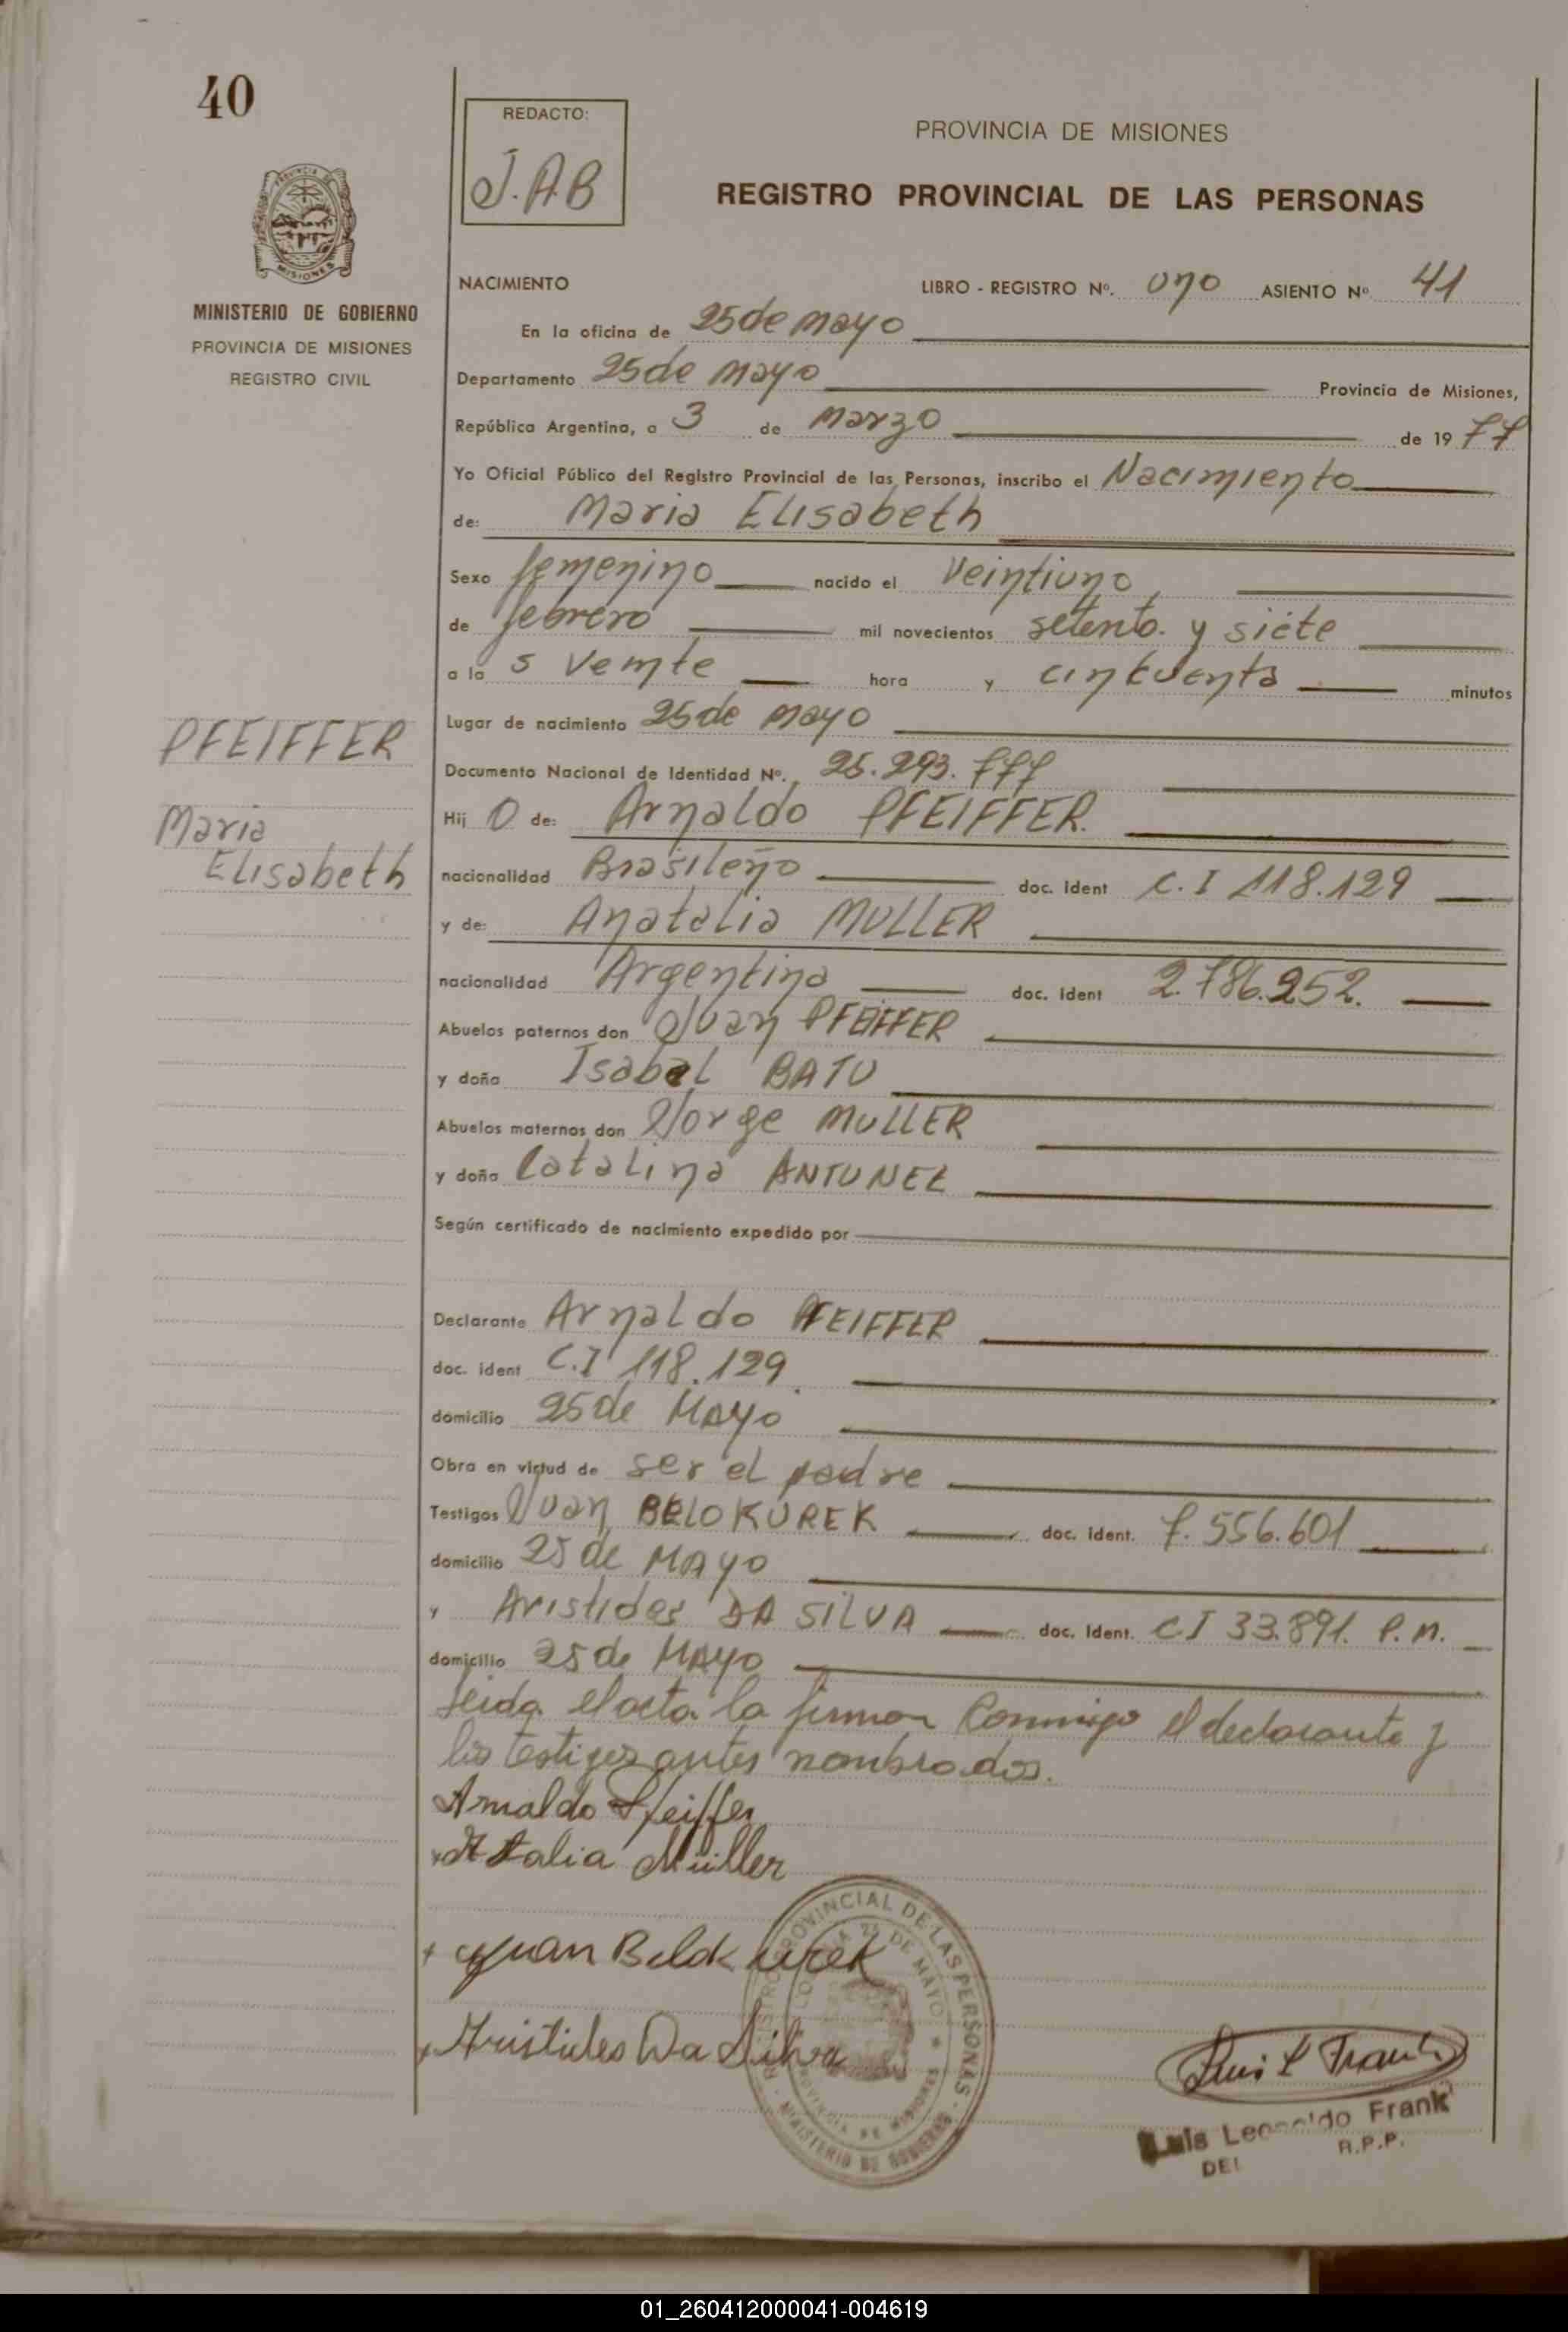 40
REDACTO:
J.A.B
PROVINCIA DE MISIONES
REGISTRO PROVINCIAL DE LAS PERSONAS
PROVINCIA DE
MISIONES
MINISTERIO DE GOBIERNO
PROVINCIA DE MISIONES
REGISTRO CIVIL
NACIMIENTO LIBRO - REGISTRO Nº. uno ASIENTO Nº 41
En la oficina de 25 de mayo
Departamento 25 de mayo Provincia de Misiones,
República Argentina, a 3 de marzo de 19 77
Yo Oficial Público del Registro Provincial de las Personas, inscribo el Nacimiento
de: Maria Elisabeth
Sexo femenino nacido el Veintiuno
de febrero mil novecientos setenta y siete
a la s Veinte hora y cincuenta minutos
Lugar de nacimiento 25 de mayo
PFEIFFER
Maria
Elisabeth
Documento Nacional de Identidad Nº. 25.293.777
Hij O de: Arnaldo PFEIFFER.
nacionalidad Brasileño doc. ident C.I 118.129
y de: Anatalia MULLER
nacionalidad Argentina doc. ident 2.786.252.
Abuelos paternos don Juan PFEIFFER
y doña Isabel BATU
Abuelos maternos don Jorge MULLER
y doña Catalina ANTUNEZ
Según certificado de nacimiento expedido por
Declarante Arnaldo PFEIFFER
doc. ident C.I 118.129
domicilio 25 de MAYO
Obra en virtud de ser el padre
Testigos Juan BELOKUREK doc. ident. 7.556.601
domicilio 25 de MAYO
y Aristides DA SILVA doc. Ident. CI 33.891. P.M.
domicilio 25 de MAYO
Leida el acta la firman Conmigo el declarante y
los testigos antes nombrados.
Arnaldo Pfeiffer
Atalia Müller
Juan Belokurek
Aristides Da Silva
REGISTRO PROVINCIAL DE LAS PERSONAS
25 DE MAYO
PROVINCIA DE MISIONES
MINISTERIO DE GOBIERNO
Luis L Frank
Luis Leopoldo Frank
R.P.P.
01_260412000041-004619